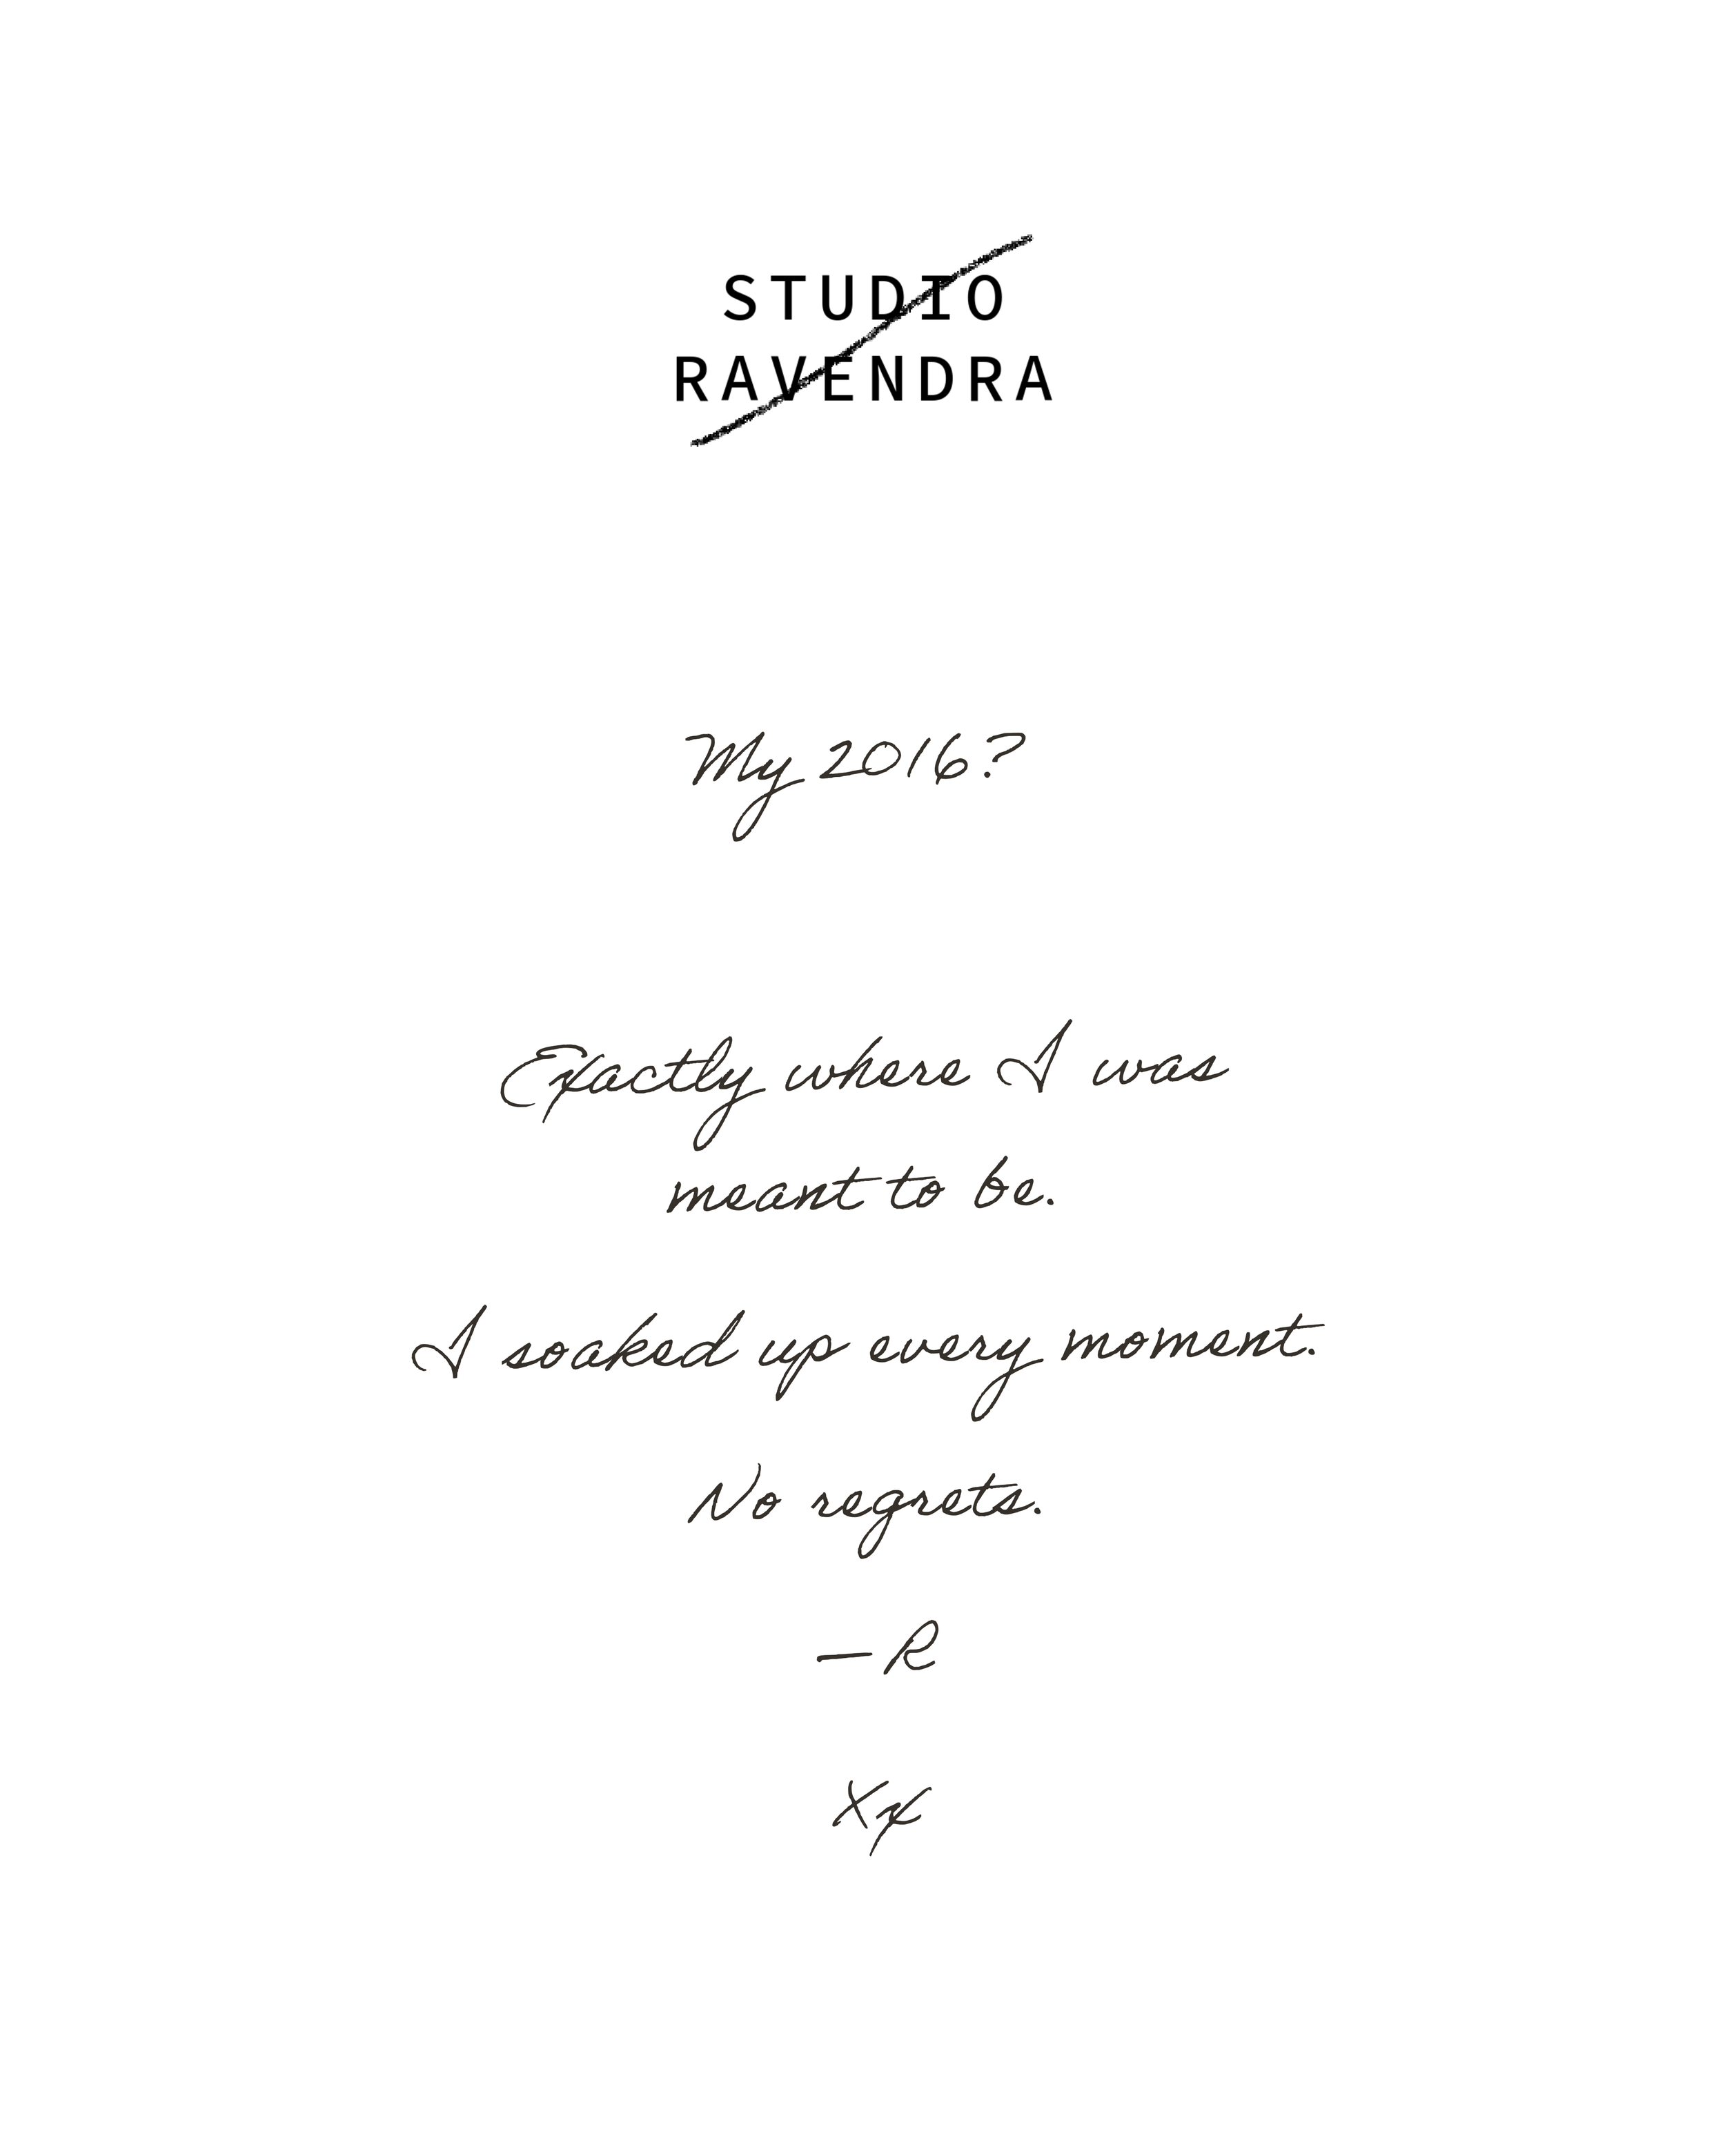 STUDIO
RAVENDRA
My 2016?
Exactly where I was
meant to be.
I soaked up every moment.
No regrets.
—R
Xx